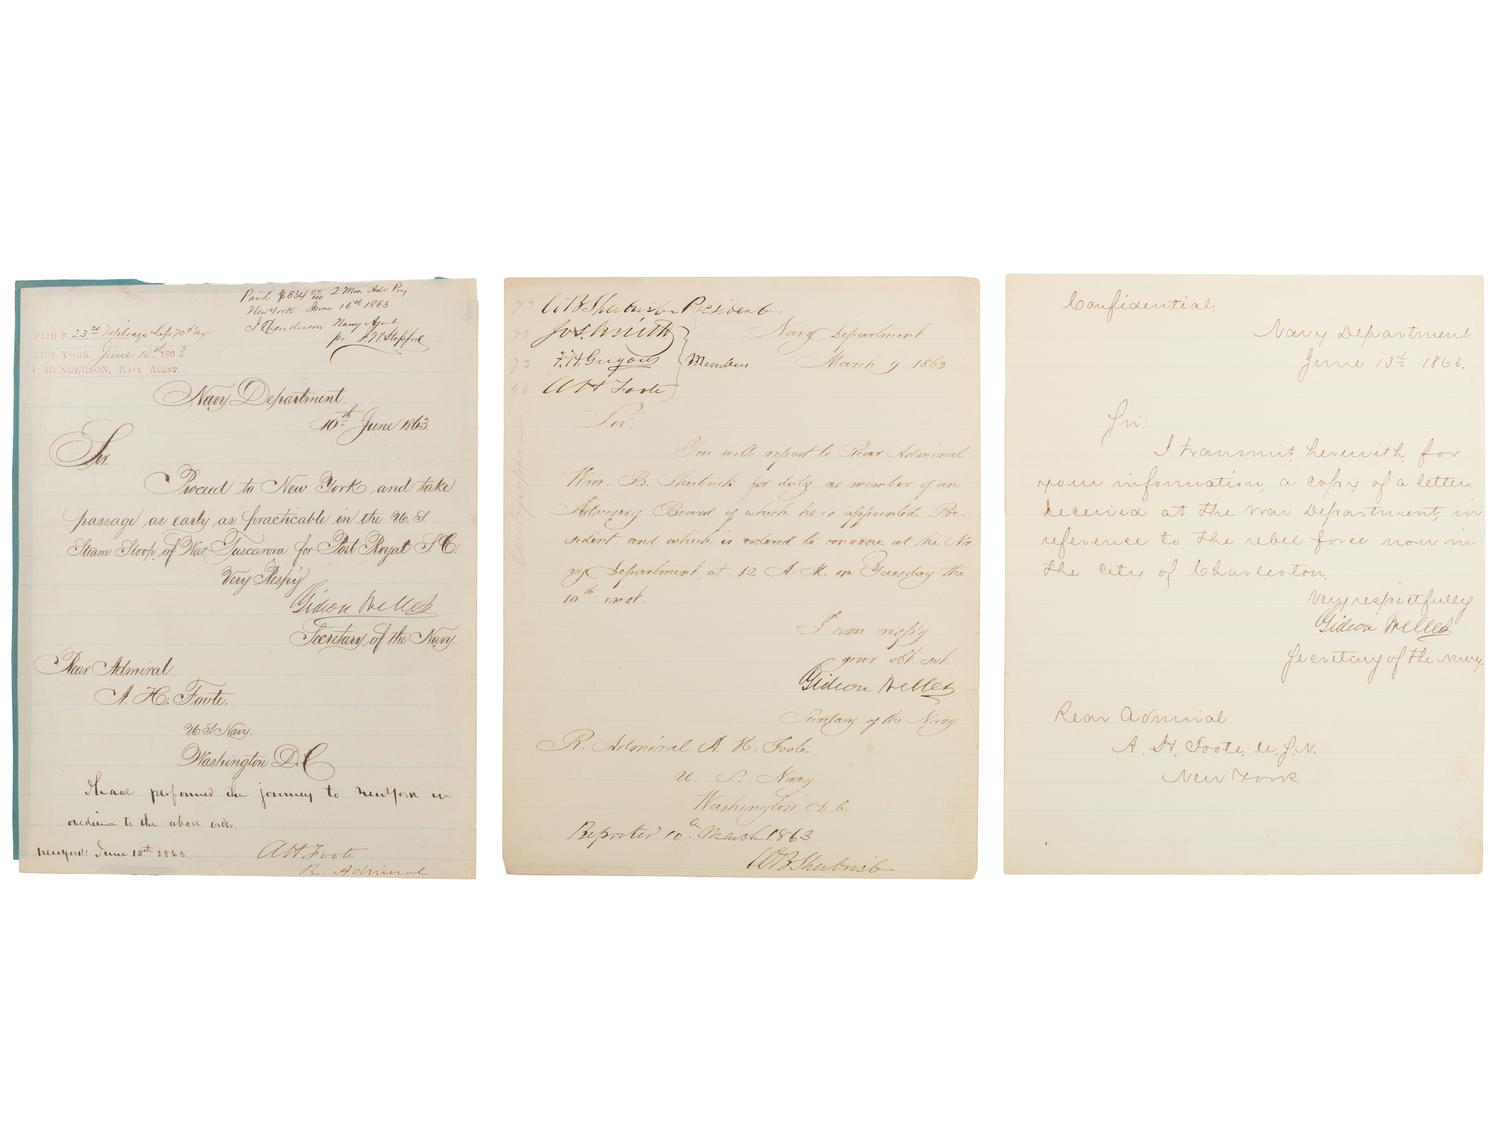 Paid $834 00/100 2 Mos Adv. Pay
New York June 16th 1863
J Henderson Navy Agent
pr
PAID $ 23 20 Mileage
NEW YORK, June 15th 1863
I. HENDERSON, NAVY AGENT
Navy Department.
10th June 1863
Sir.
Proceed to New York and take
passage as early as practicable in the U. S
Steam Sloop of War Tuscarora for Port Royal S C.
Very Resp'y
Gideon Welles
Secretary of the Navy.
Rear Admiral
A. H. Foote.
U S Navy.
Washington D C
I have performed the journey to New York in
obedience to the above order.
New York: June 15th 1863.
A H Foote
R. Admiral
73 W B Shubrick President
73 Jos. Smith
73 F. H Gregory
56 A H Foote
Members
Navy Department
March 9 1863
Sir.
You will report to Rear Admiral
Wm. B. Shubrick for duty as member of an
Advisory Board of which he is appointed Pre-
sident and which is ordered to convene at the Na-
vy Department at 12 A. M. on Tuesday the
10th inst.
I am resp'y
your obt. svt.
Gideon Welles
Secretary of the Navy
R. Admiral A. H. Foote
U. S. Navy
Washington D. C.
Reported 10th March 1863
W B Shubrick
Confidential.
Navy Department
June 13th 1863.
Sir:
I transmit, herewith, for
your information, a copy of a letter
received at the War Department, in
reference to the rebel force now in
the city of Charleston.
Very respectfully
Gideon Welles
Secretary of the Navy.
Rear Admiral
A. H. Foote, U. S. N.
New York